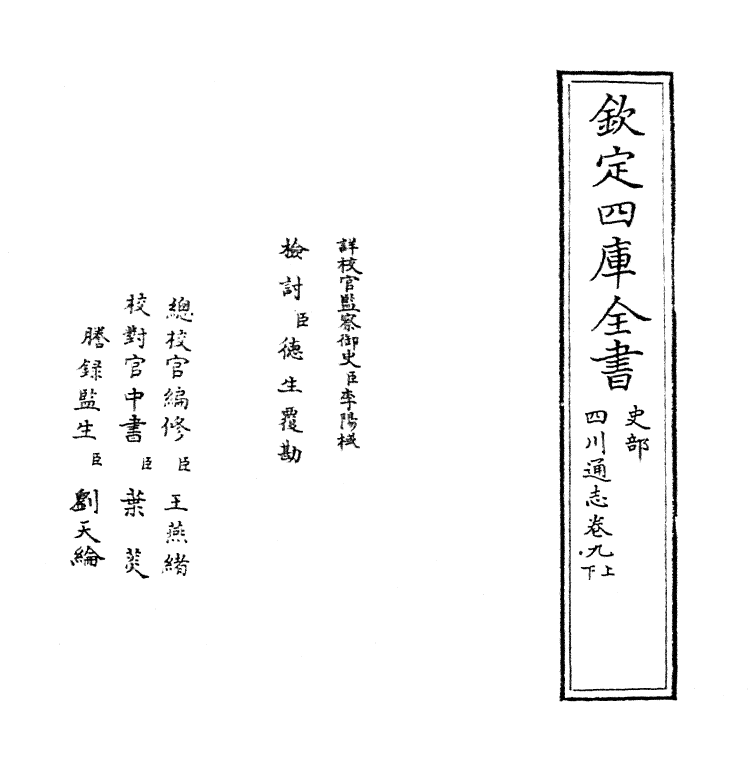 欽定四庫全書
史部
四川通志卷九上下
詳校官監察御史臣李陽棫
檢討臣德生覆勘
總校官編修臣王燕緒
校對官中書臣葉菼
謄錄監生臣劉天綸